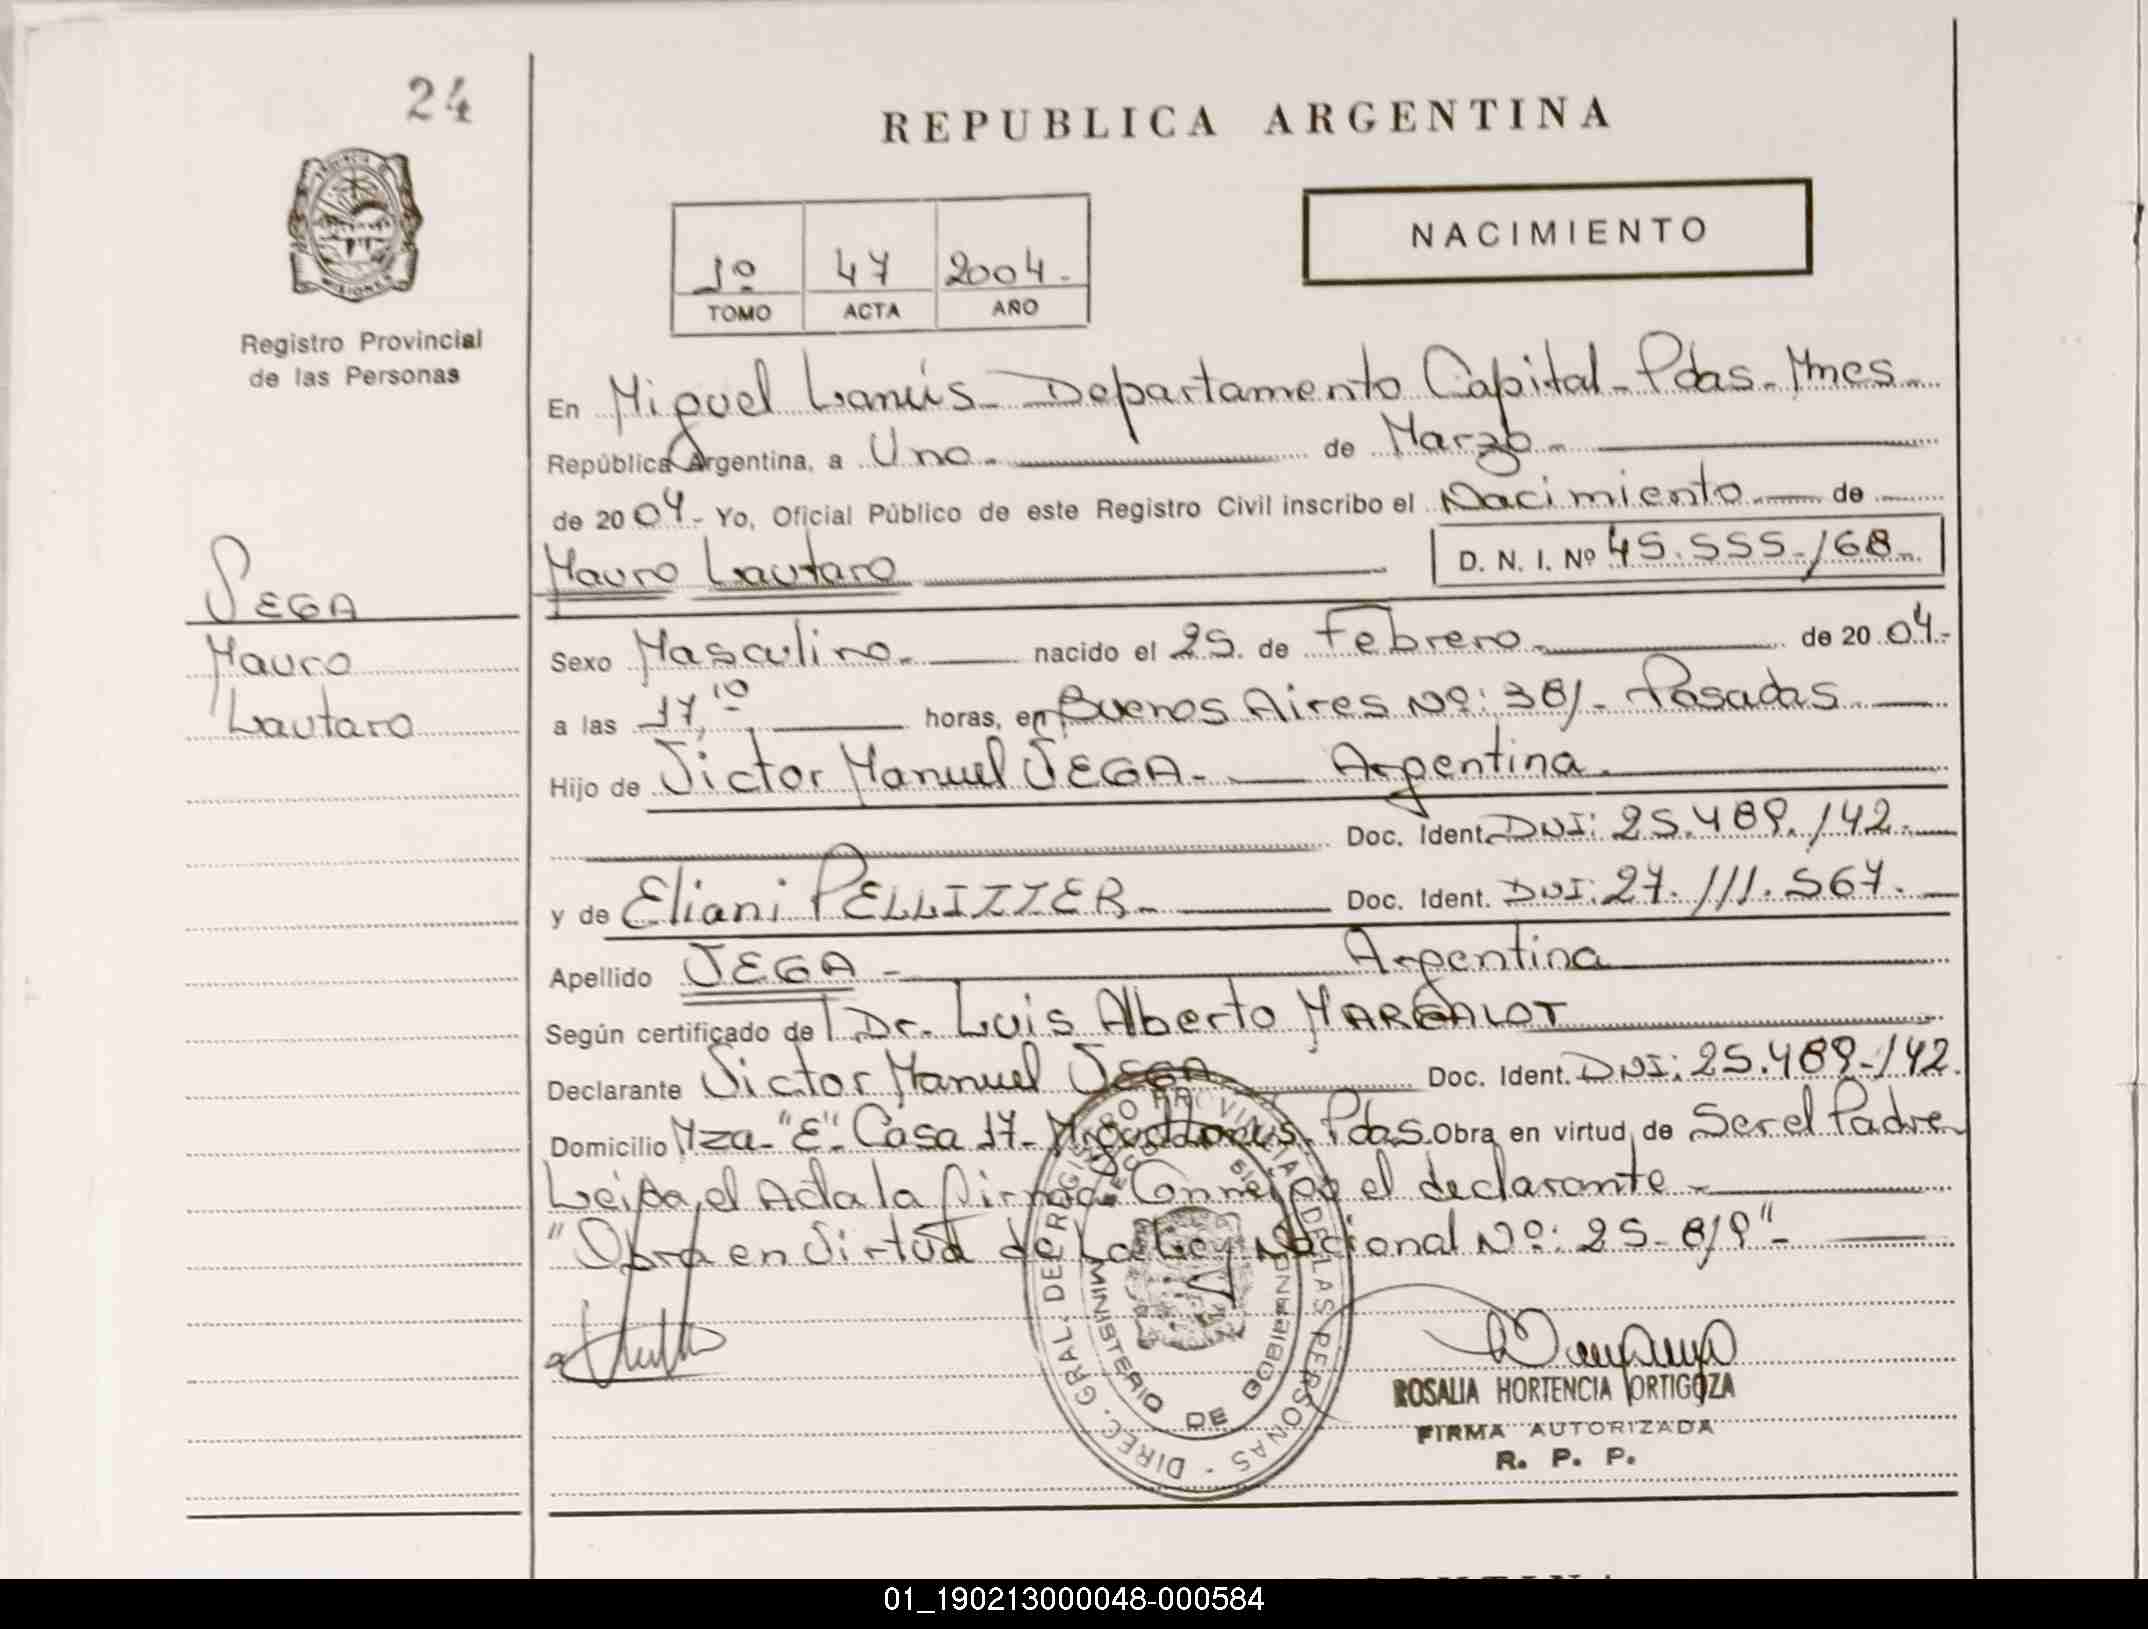 24
REPUBLICA ARGENTINA
NACIMIENTO
1º 47 2004.-
TOMO ACTA AÑO
Registro Provincial
de las Personas
En Miguel Lanús - Departamento Capital - Pdas - Mnes -
República Argentina, a Uno.- de Marzo -
de 2004.- Yo, Oficial Público de este Registro Civil inscribo el Nacimiento de
Mauro Lautaro D. N. I. Nº 45.555.168.-
VEGA
Mauro
Lautaro
Sexo Masculino.- nacido el 25. de Febrero.- de 2004.-
a las 17,10 horas, en Buenos Aires Nº: 381- Posadas.
Hijo de Victor Manuel VEGA.- Argentina.
Doc. Ident. DNI: 25.489.142.-
y de Eliani PELLIZZER.- Doc. Ident. DNI: 27.111.567.-
Apellido VEGA - Argentina
Según certificado del Dr. Luis Alberto MARGALOT
Declarante Victor Manuel VEGA Doc. Ident. DNI: 25.489.142.
Domicilio Mza-"E"- Casa 17- Miguel Lanus. Pdas. Obra en virtud de Ser el Padre
Leida el Acta la firma Conmigo el declarante -
"Obra en Virtud de La Ley Nacional Nº: 25-819"-
DIREC. GRAL. DE REGISTRO PROVINCIAL DE LAS PERSONAS
MINISTERIO DE GOBIERNO
ROSALIA HORTENCIA ORTIGOZA
FIRMA AUTORIZADA
R. P. P.
01_190213000048-000584